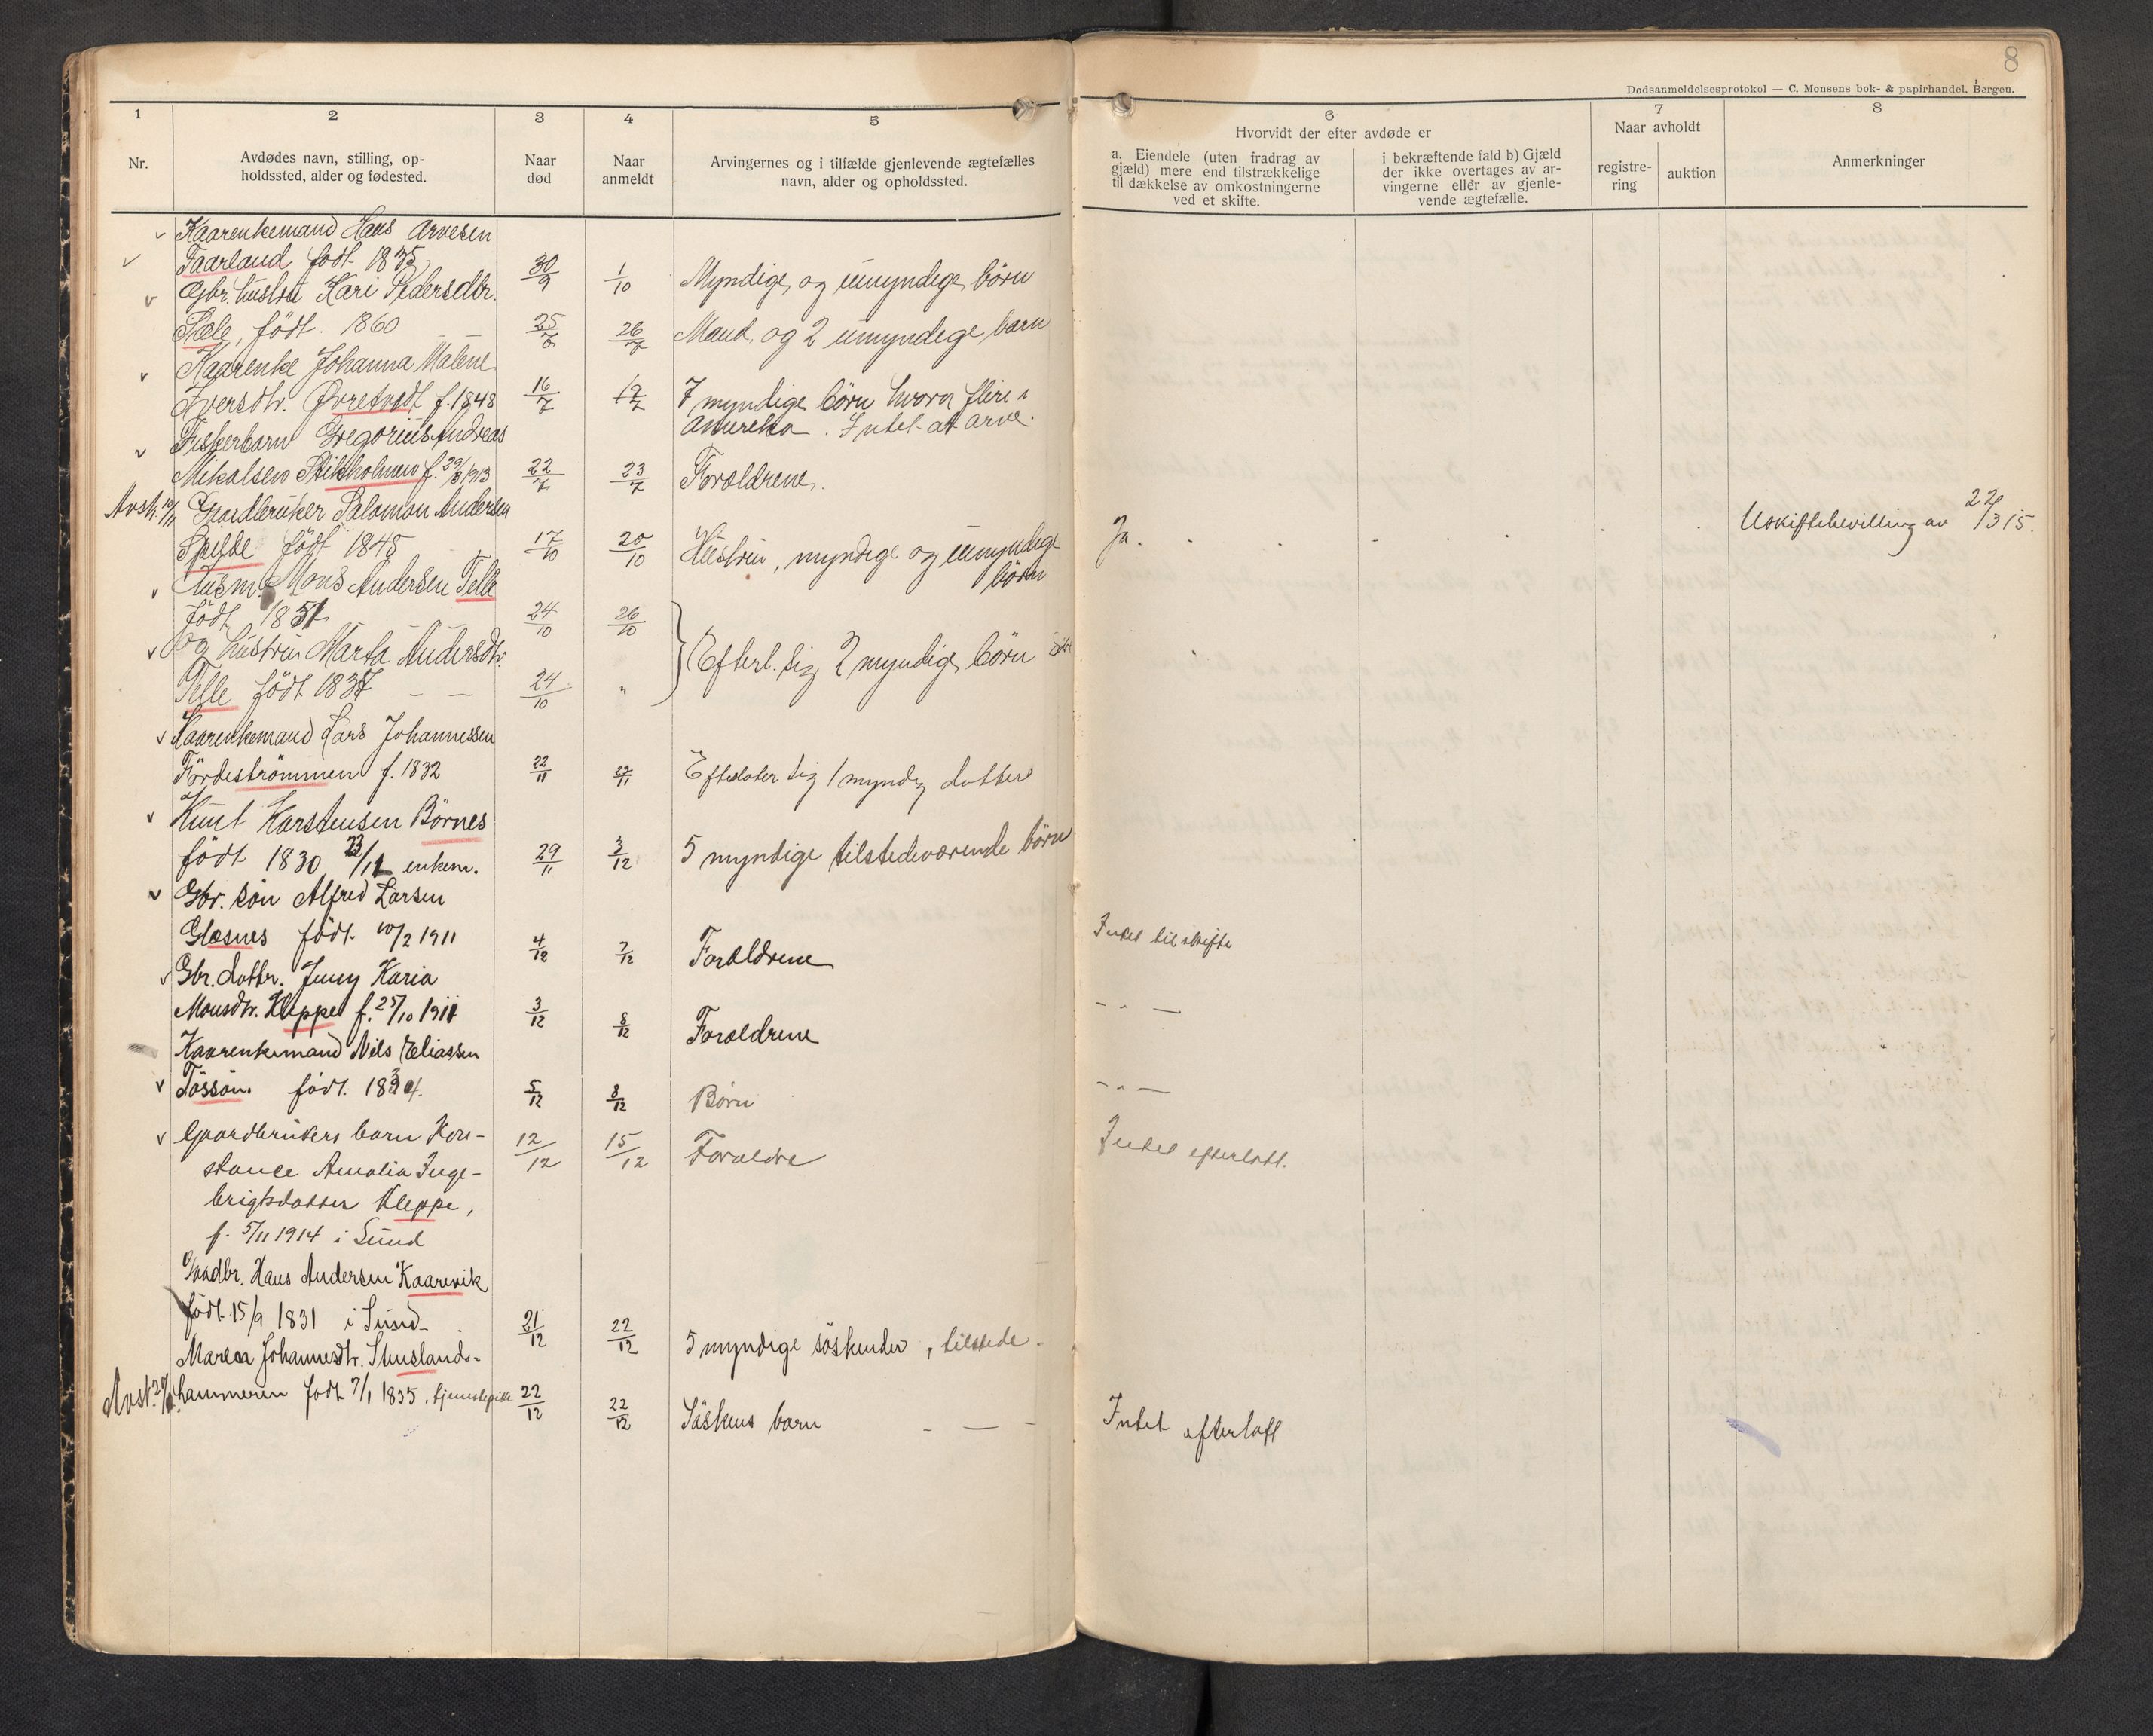 8
Dødsanmeldelsesprotokol — C. Monsens bok- & papirhandel, Bergen.
1 2 3 4 5 6 7 8
Nr.
Avdødes navn, stilling, op-
holdssted, alder og fødested.
Naar
død
Naar
anmeldt
Arvingernes og i tilfælde gjenlevende ægtefælles
navn, alder og opholdssted.
Hvorvidt der efter avdøde er
a. Eiendele (uten fradrag av
gjæld) mere end tilstrækkelige
til dækkelse av omkostningerne
ved et skifte.
i bekræftende fald b) Gjæld
der ikke overtages av ar-
vingerne eller av gjenle-
vende ægtefælle.
Naar avholdt
registre-
ring
auktion
Anmerkninger
Kaarenkemand Hans Arnesen
Taarland født 1835 30/9 1/10 Myndige og umyndige børn
Gbr. hustru Kari Pedersdtr.
Sæle, født. 1860 25/7 26/7 Mand og 2 umyndige barn
Kaarenke Johanna Malene
Iversdtr. Øvretvedt f. 1848 16/7 19/7 7 myndige børn hvorav flere i
Amerika. Intet at arve.
Fiskerbarn Gregorius Andreas
Mikalsen Stikholmen f. 1913 22/7 23/7 Forældrene.
Gaardbruker Salomon Andersen
Spilde født 1848 17/10 20/10 Hustru, myndige og umyndige
børn
Ja. Uskiftebevilling av 22/3 15.
Husm. Mons Andersen Telle
født 1851 24/10 26/10
og hustru Marta Andersdtr.
Telle født 1837 24/10 " Efterl. sig 2 myndige børn
Kaarenkemand Lars Johannessen
Fördeströmmen f. 1832 22/11 Efterlater sig 1 myndig datter
Knut Karstensen Börnes
født 1830 23/11 enkem. 29/11 3/12 5 myndige tilstedeværende børn
Gbr. søn Alfred Larsen
Glesnes født 10/2 1911 4/12 7/12 Forældrene Intet til skifte
Gbr. dattr. Jenny Karia
Monsdtr. Kleppe f. 25/10 1911 3/12 8/12 Forældrene - " -
Kaarenkemand Nils Eliassen
Tössön født. 1834. 5/12 8/12 Børn - " -
Gaardbrukers barn Kon-
stance Amalia Inge-
brigtsdatter Kleppe,
f. 5/11 1914 i Sund
12/12 15/12 Forældre Intet efterlatt.
Gaardbr. Hans Andersen Kaarevik
født 15/9 1831 i Sund 21/12 22/12 5 myndige söskender, tilstede.
Maren Johannesdtr. Skuslands-
hammeren født 7/1 1835. tjenestepike 22/12 22/12 Søskens barn Intet efterlatt